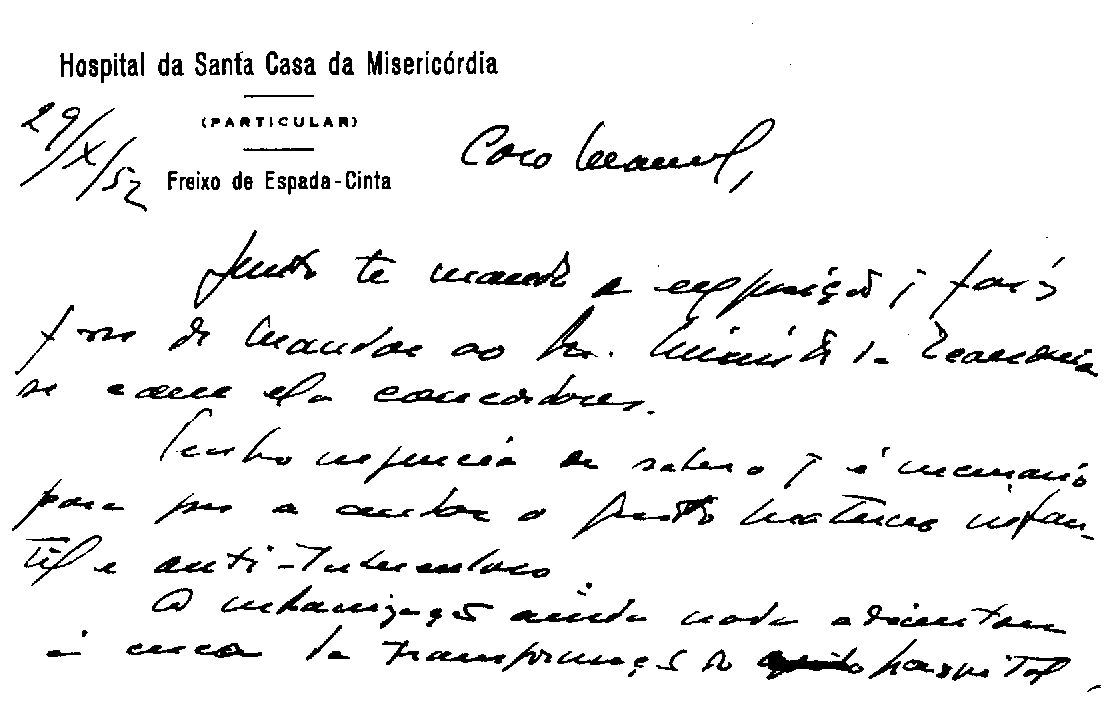 Hospital da Santa Casa da Misericórdia
(PARTICULAR)
29/X/52
Freixo de Espada-Cinta
Caro Manuel,
Junto te mando a exposição q farás
favor de mandar ao Snr. Ministro da Economia
se com ela concordares.
Tenho urgencia de saber o q é necessario
para por a andar o posto materno infan-
til e anti-tuberculoso.
A urbanização ainda nada adientou
á cerca da transformação do hospital,